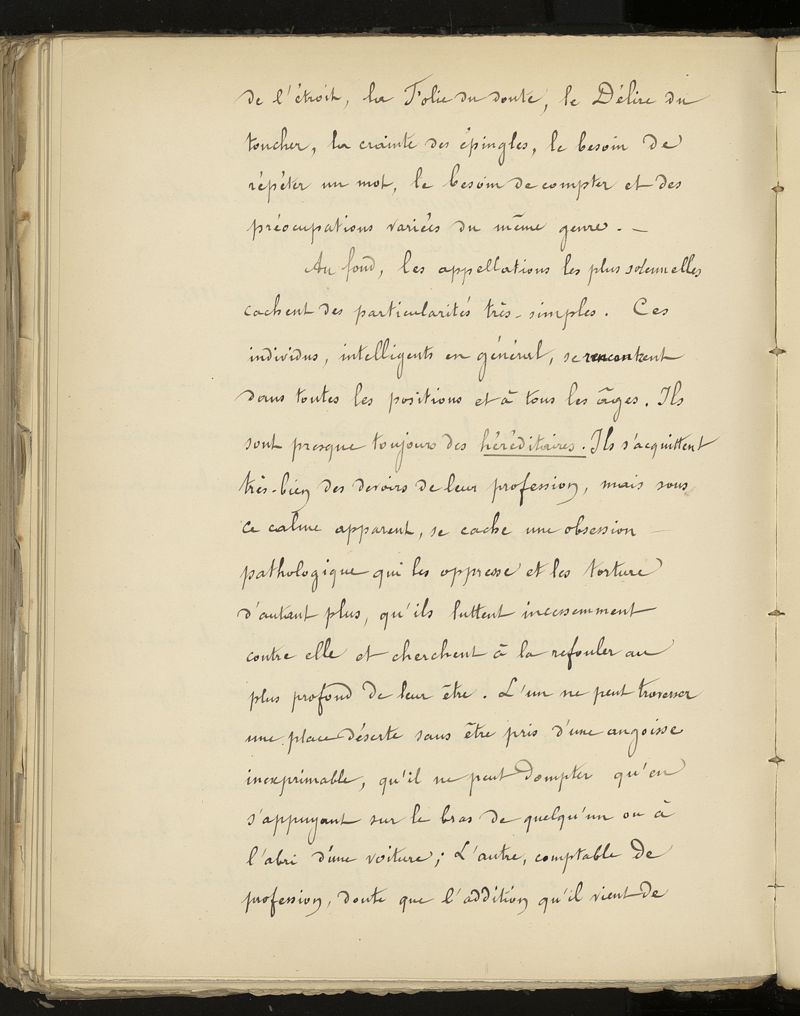 de l'étroit, la Folie du doute, le Délire du
toucher, la crainte des épingles, le besoin de
répéter un mot, le besoin de compter et des
préocupations variées du même genre. —
Au fond, les appellations les plus solennelles
cachent des particularités très-simples. Ces
individus, intelligents en général, se rencontrent
dans toutes les positions et à tous les âges. Ils
sont presque toujours des héréditaires. Ils s'acquittent
très-bien des devoirs de leur profession, mais sous
ce calme apparent, se cache une obsession
pathologique qui les oppresse et les torture
d'autant plus, qu'ils luttent incessemment
contre elle et cherchent à la refouler au
plus profond de leur être. L'un ne peut traverser
une place déserte sans être pris d'une angoisse
inexprimable, qu'il ne peut dompter qu'en
s'appuyant sur le bras de quelqu'un ou à
l'abri d'une voiture; L'autre, comptable de
profession, doute que l'addition qu'il vient de